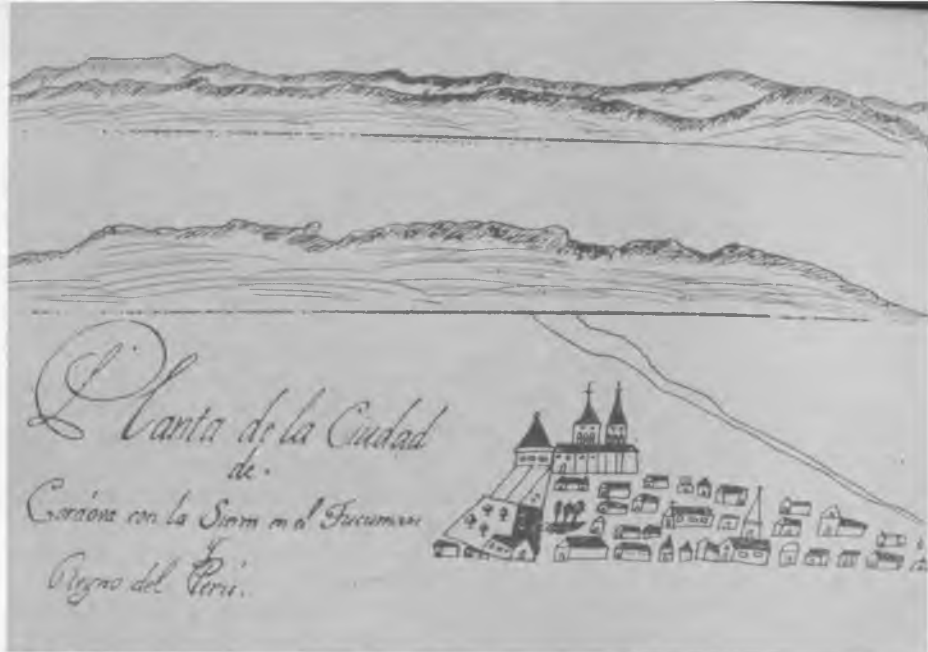 Planta de la Ciudad
de.
Cordova con la en el Tucuman
y
Regno del Perú.